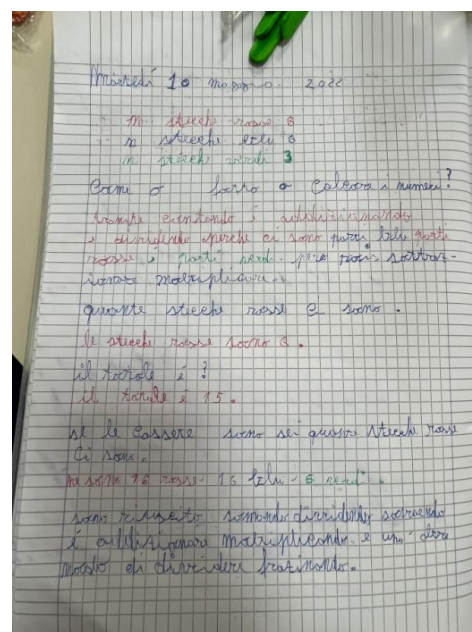 Martedì 10 maggio 2022
n stecche rosse 6
n stecche blu 6
n stecche verdi 3
Come o fatto a calcora i numeri?
tramite contando e addizionando
e dividendo perche ci sono parti blu parti
rosse e parti verdi poi sottra-
ionare motriplicare.
quante stecche rosse ci sono.
le stecche rosse sono 6.
il totole è?
il totale è 15.
se le cassere sono sei quante stecche rosse
ci sono.
ne sono 16 rosse 16 blu 6 verdi.
sono riuscito somando dividendo sotraendo
e addisionare motriplicando e uno
modo di dividere